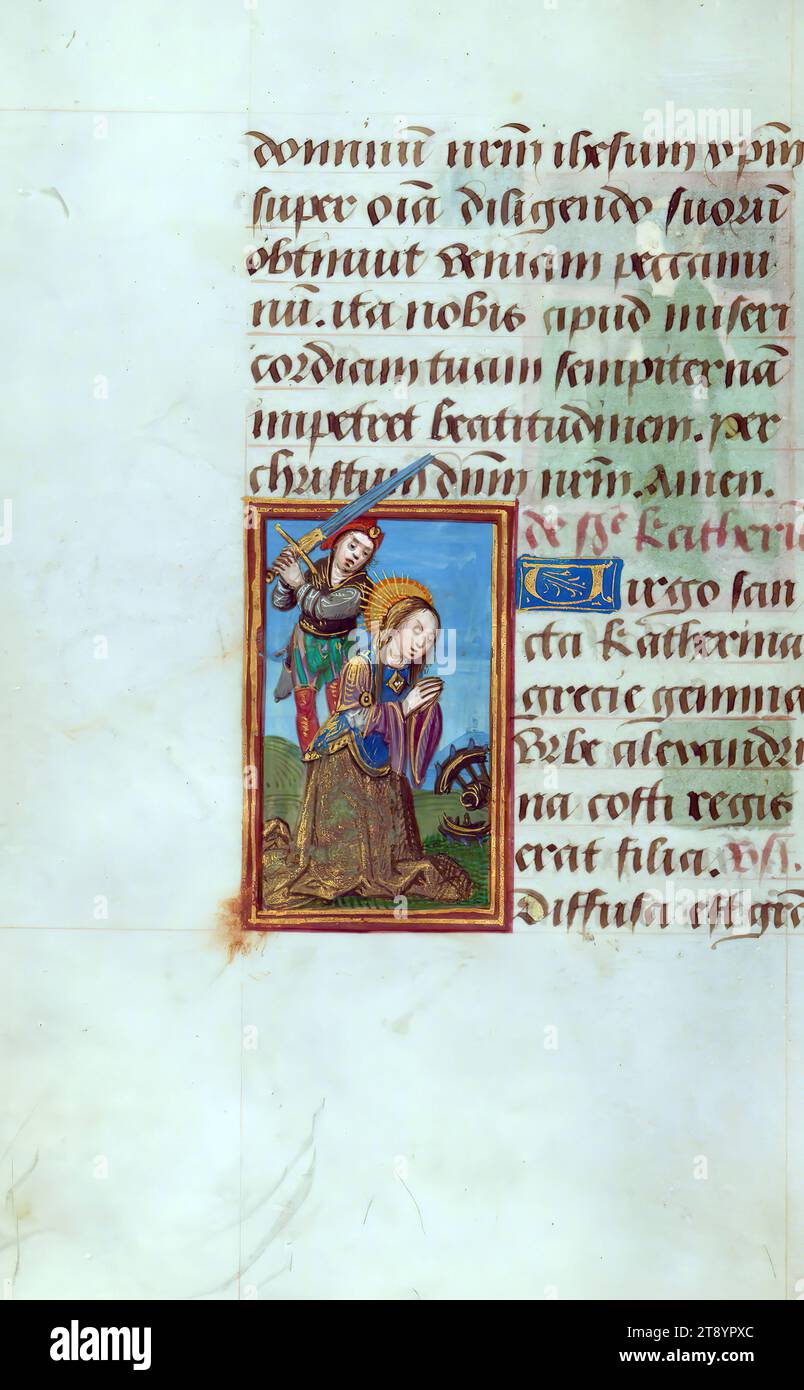 dominū nrm̄ ihesum xpm̄
super oīa diligendo suorū
obtinuit veniam peccami
nū. ita nobis apud miseri
cordiam tuam sempiternā
impetret beatitudinem. per
christum dūm nrm̄. Amen.
de sc̄e Katherin
Virgo san
cta Katherina
grecie gemma
Vrbe alexandri
na costi regis
erat filia. Vs.
Diffusa est grā
alamy
Image ID: 2T8YPXC
www.alamy.com